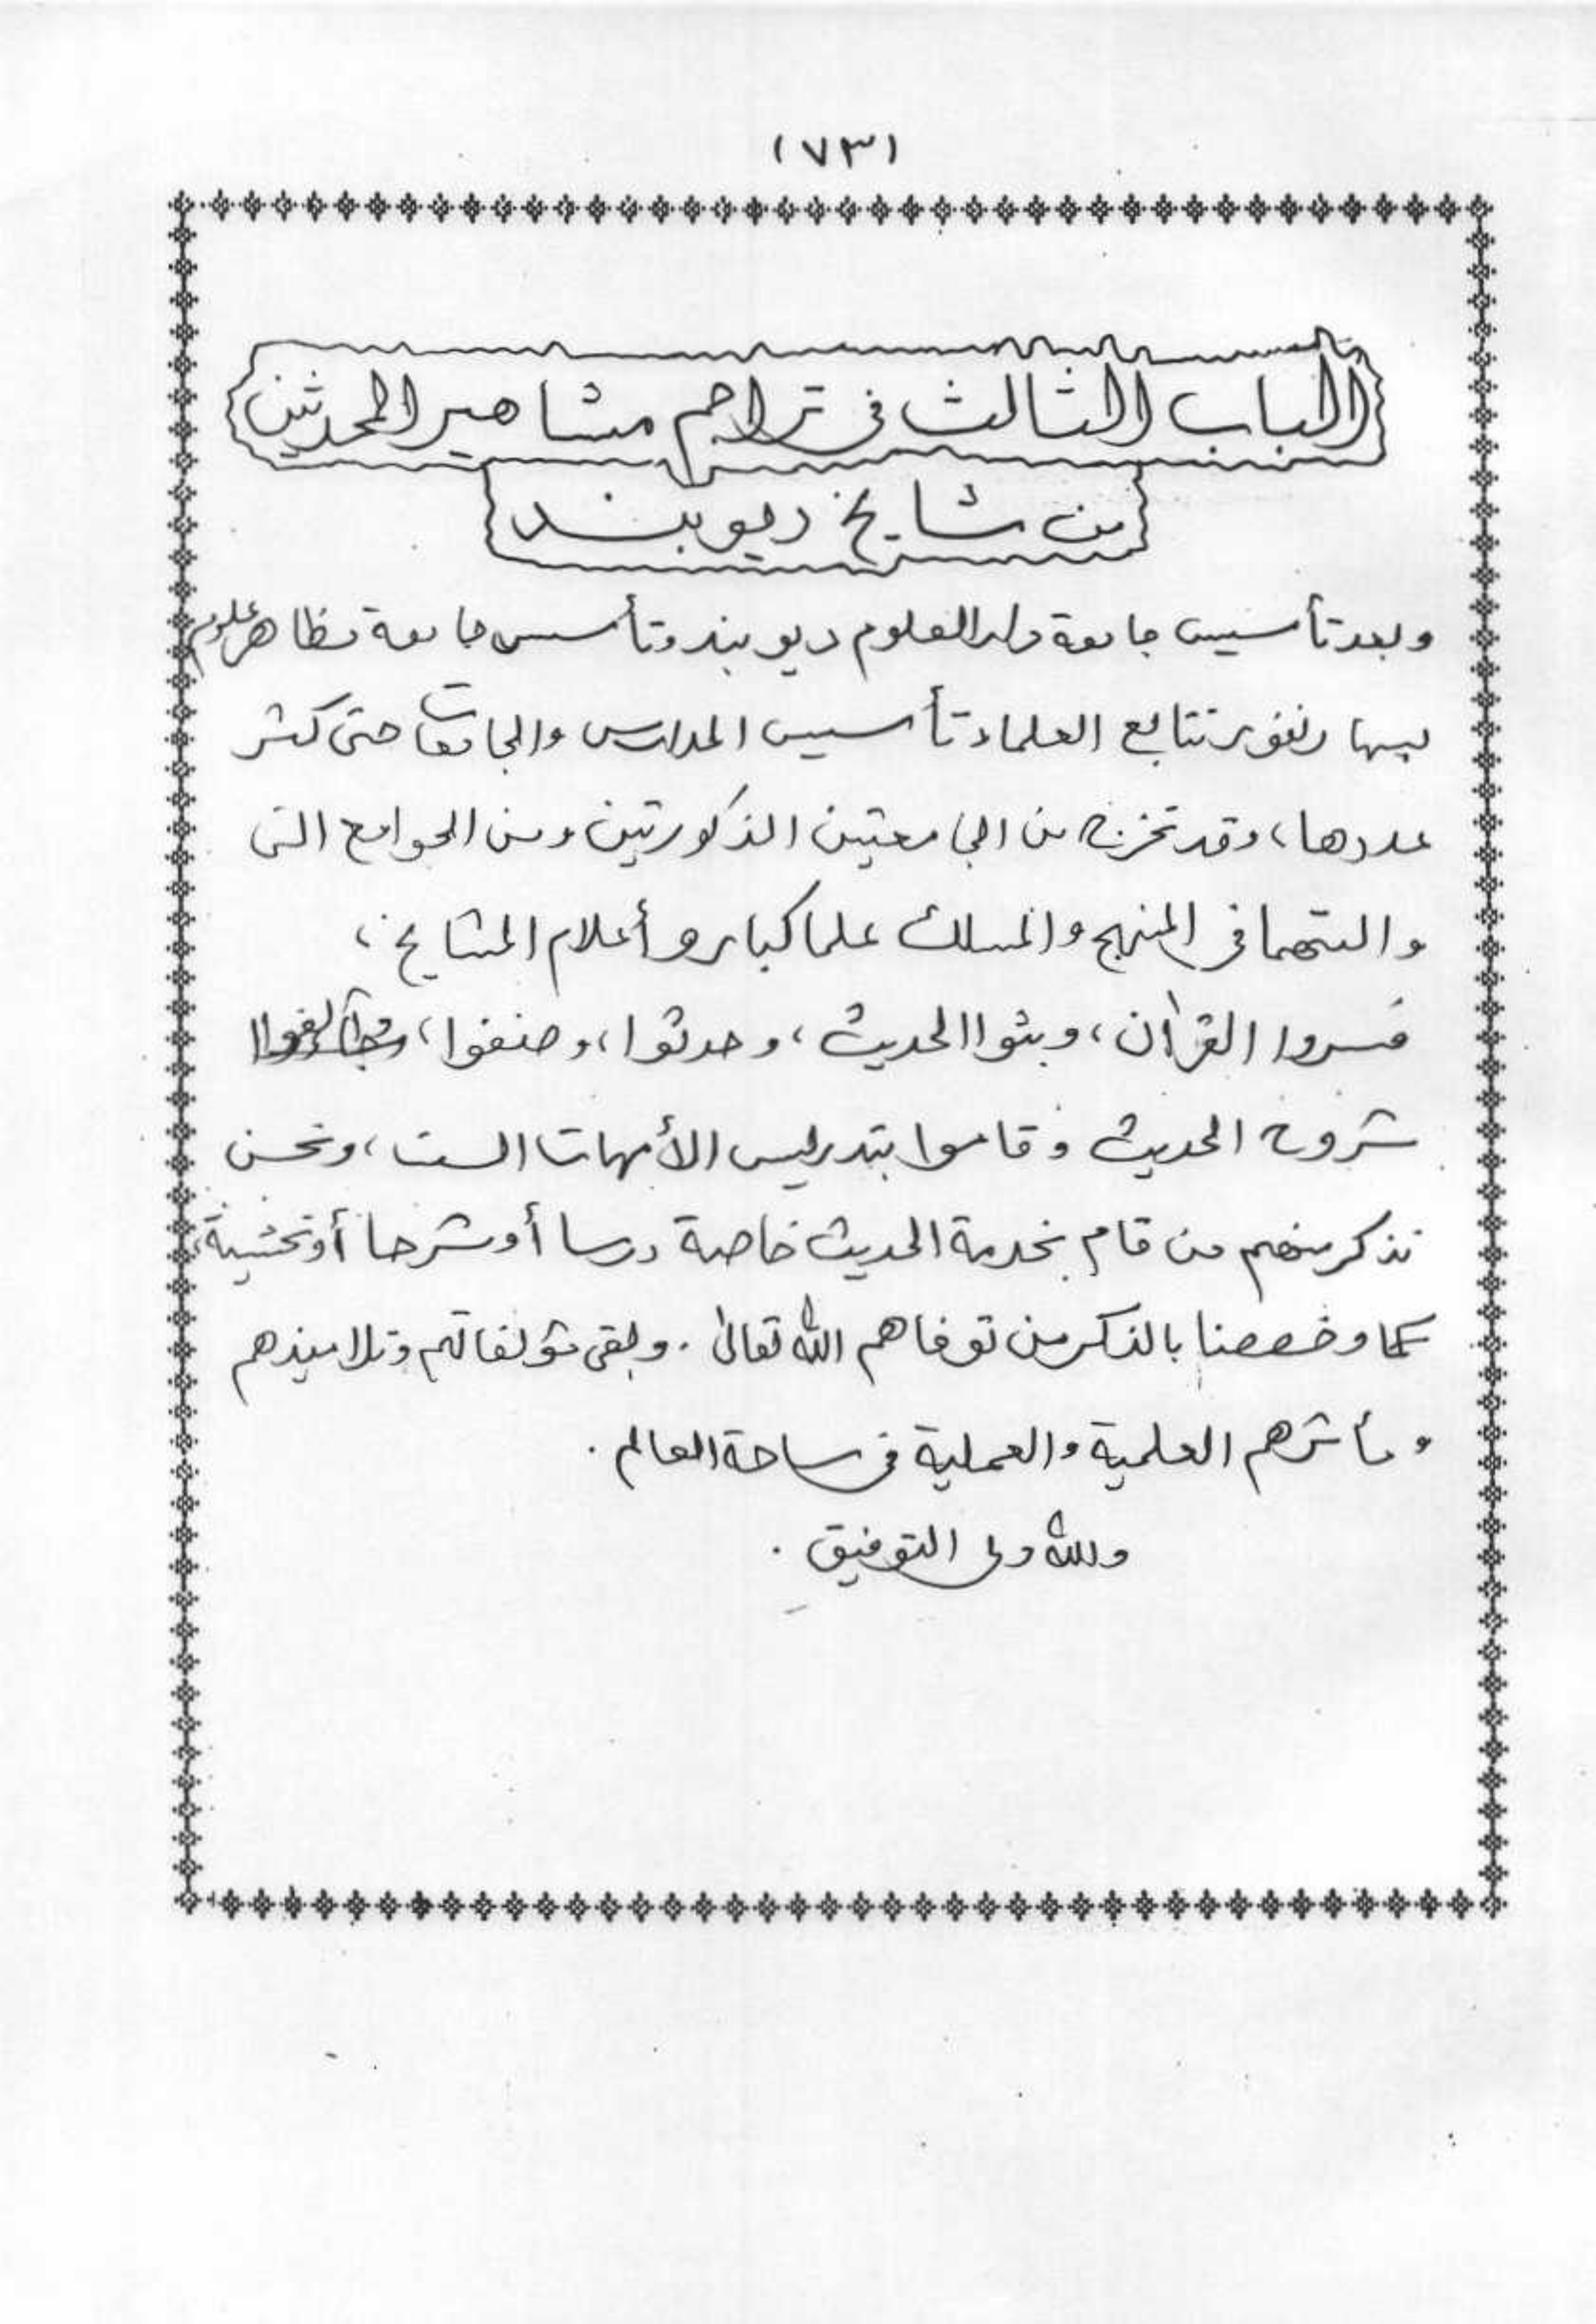 (٧٣)
الباب الثالث في تراجم مشاهير المحدثين
من مشايخ ديوبند
وبعد تأسيس جامعة دار العلوم ديوبند وتأسيس جامعة مظاهر علوم
بسهارنفور تتابع العلماء تأسيس المدارس والجامعات حتى كثر
عددها، وقد تخرج من الجامعتين المذكورتين ومن الجوامع التي
والتهما في المنهج والمسلك علما كبار و أعلام المشايخ،
فسروا القرآن، وبثوا الحديث، وحدثوا، وصنفوا،
شروح الحديث وقاموا بتدريس الأمهات الست، ونحن
نذكر منهم من قام بخدمة الحديث خاصة درسا أو شرحا أو تحشية،
كما وخصصنا بالذكر من توفاهم الله تعالى . وبقي مؤلفاتهم وتلاميذهم
ومأثرهم العلمية والعملية في ساحة العالم .
والله ولي التوفيق .